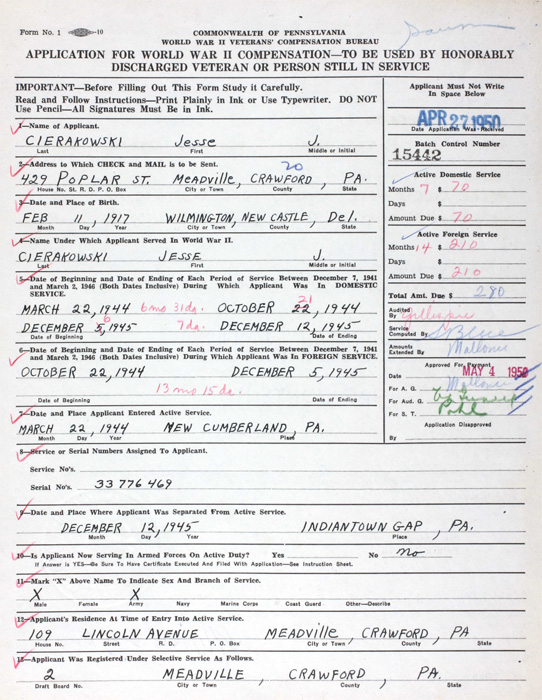 Form No. 1 -10
COMMONWEALTH OF PENNSYLVANIA
WORLD WAR II VETERANS' COMPENSATION BUREAU
APPLICATION FOR WORLD WAR II COMPENSATION—TO BE USED BY HONORABLY
DISCHARGED VETERAN OR PERSON STILL IN SERVICE
IMPORTANT—Before Filling Out This Form Study it Carefully.
Read and Follow Instructions—Print Plainly in Ink or Use Typewriter. DO NOT
Use Pencil—All Signatures Must Be in Ink.
1—Name of Applicant.
CIERAKOWSKI Jesse J.
Last First Middle or Initial
2—Address to Which CHECK and MAIL is to be Sent.
20
429 POPLAR ST. MEADVILLE, CRAWFORD, PA.
House No. St. R. D. P. O. Box City or Town County State
3—Date and Place of Birth.
FEB 11, 1917 WILMINGTON, NEW CASTLE, Del.
Month Day Year City or Town County State
4—Name Under Which Applicant Served In World War II.
CIERAKOWSKI JESSE J.
Last First Middle or Initial
5—Date of Beginning and Date of Ending of Each Period of Service Between December 7, 1941
and March 2, 1946 (Both Dates Inclusive) During Which Applicant Was In DOMESTIC
SERVICE.
21
MARCH 22, 1944 6 mo 31 da. OCTOBER 22, 1944
6
DECEMBER 5, 1945 7 da. DECEMBER 12, 1945
Date of Beginning Date of Ending
6—Date of Beginning and Date of Ending of Each Period of Service Between December 7, 1941
and March 2, 1946 (Both Dates Inclusive) During Which Applicant Was In FOREIGN SERVICE.
OCTOBER 22, 1944 DECEMBER 5, 1945
13 mo 15 da.
Date of Beginning Date of Ending
7—Date and Place Applicant Entered Active Service.
MARCH 22, 1944 NEW CUMBERLAND, PA.
Month Day Year Place
Applicant Must Not Write
In Space Below
APR 27 1950
Date Application Was Received
Batch Control Number
15442
Active Domestic Service
Months 7 $ 70
Days $
Amount Due $ 70
Active Foreign Service
Months 14 $ 210
Days $
Amount Due $ 210
Total Amt. Due $ 280
Audited
By
Service
Computed By
Amounts
Extended By
Approved For Payment
Date MAY 4 1950
For A. G.
For Aud. G.
For S. T.
Application Disapproved
By
8—Service or Serial Numbers Assigned To Applicant.
Service No's.
Serial No's. 33 776 469
9—Date and Place Where Applicant Was Separated From Active Service.
DECEMBER 12, 1945 INDIANTOWN GAP, PA.
Month Day Year Place
10—Is Applicant Now Serving In Armed Forces On Active Duty? Yes No no
If Answer is YES—Be Sure To Have Certificate Executed And Filed With Application—See Instruction Sheet.
11—Mark "X" Above Name To Indicate Sex and Branch of Service.
X X
Male Female Army Navy Marine Corps Coast Guard Other—Describe
12—Applicant's Residence At Time of Entry Into Active Service.
109 LINCOLN AVENUE MEADVILLE, CRAWFORD, PA
House No. Street R. D. P. O. Box City or Town County State
13—Applicant Was Registered Under Selective Service As Follows.
2 MEADVILLE, CRAWFORD, PA.
Draft Board No. City or Town County State